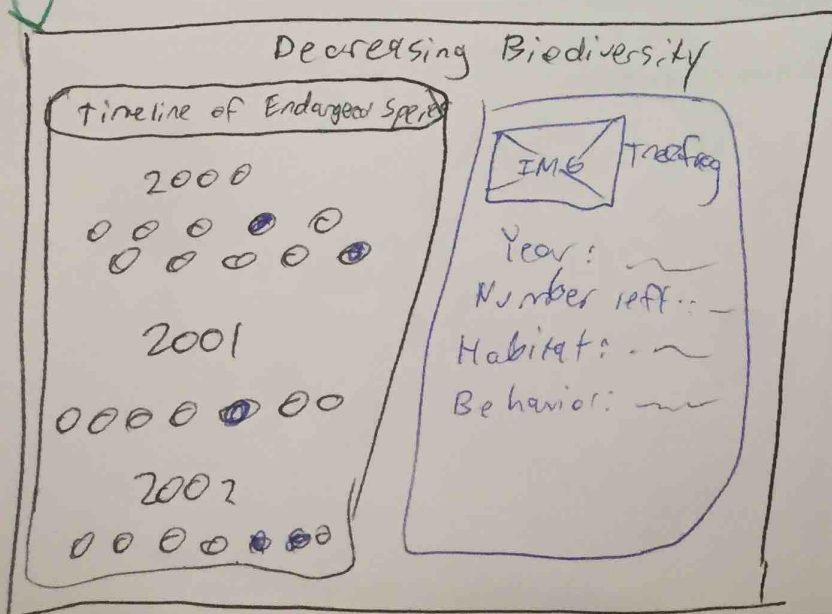 Decreasing Biodiversity
Timeline of Endangered Species
2000
2001
2002
IMG
Treefrog
Year:
Number left:
Habitat:
Behavior: